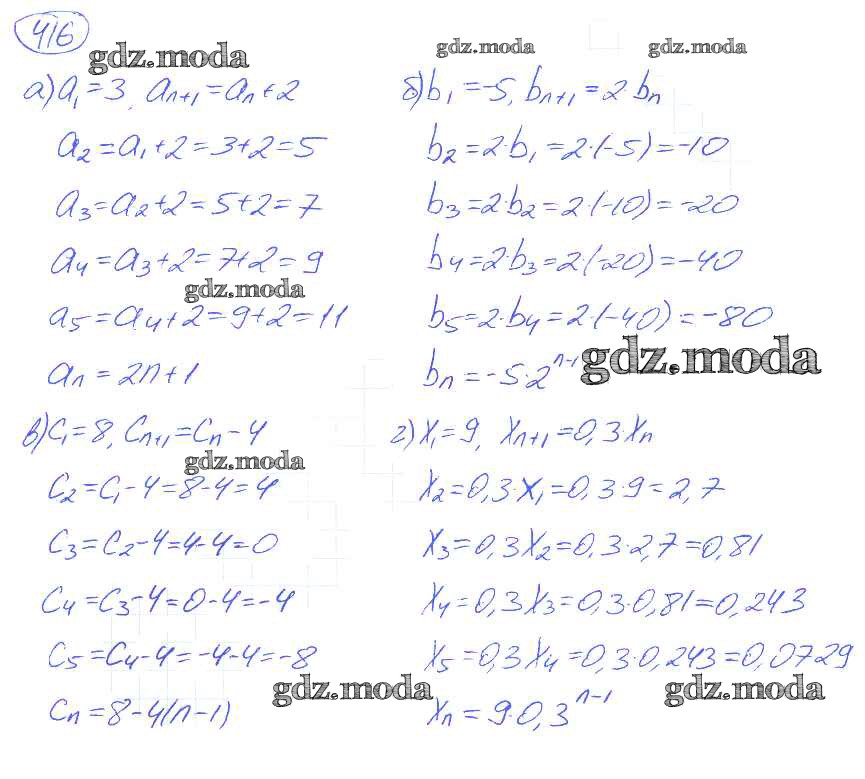 416
gdz.moda
gdz.moda
gdz.moda
а) a₁=3, aₙ₊₁=aₙ+2
a₂=a₁+2=3+2=5
a₃=a₂+2=5+2=7
a₄=a₃+2=7+2=9
gdz.moda
a₅=a₄+2=9+2=11
aₙ=2n+1
б) b₁=-5, bₙ₊₁=2bₙ
b₂=2·b₁=2·(-5)=-10
b₃=2·b₂=2·(-10)=-20
b₄=2·b₃=2·(-20)=-40
b₅=2·b₄=2·(-40)=-80
bₙ=-5·2ⁿ⁻¹
gdz.moda
в) c₁=8, cₙ₊₁=cₙ-4
gdz.moda
c₂=c₁-4=8-4=4
c₃=c₂-4=4-4=0
c₄=c₃-4=0-4=-4
c₅=c₄-4=-4-4=-8
gdz.moda
cₙ=8-4(n-1)
г) x₁=9, xₙ₊₁=0,3xₙ
x₂=0,3·x₁=0,3·9=2,7
x₃=0,3x₂=0,3·2,7=0,81
x₄=0,3x₃=0,3·0,81=0,243
x₅=0,3x₄=0,3·0,243=0,0729
gdz.moda
xₙ=9·0,3ⁿ⁻¹